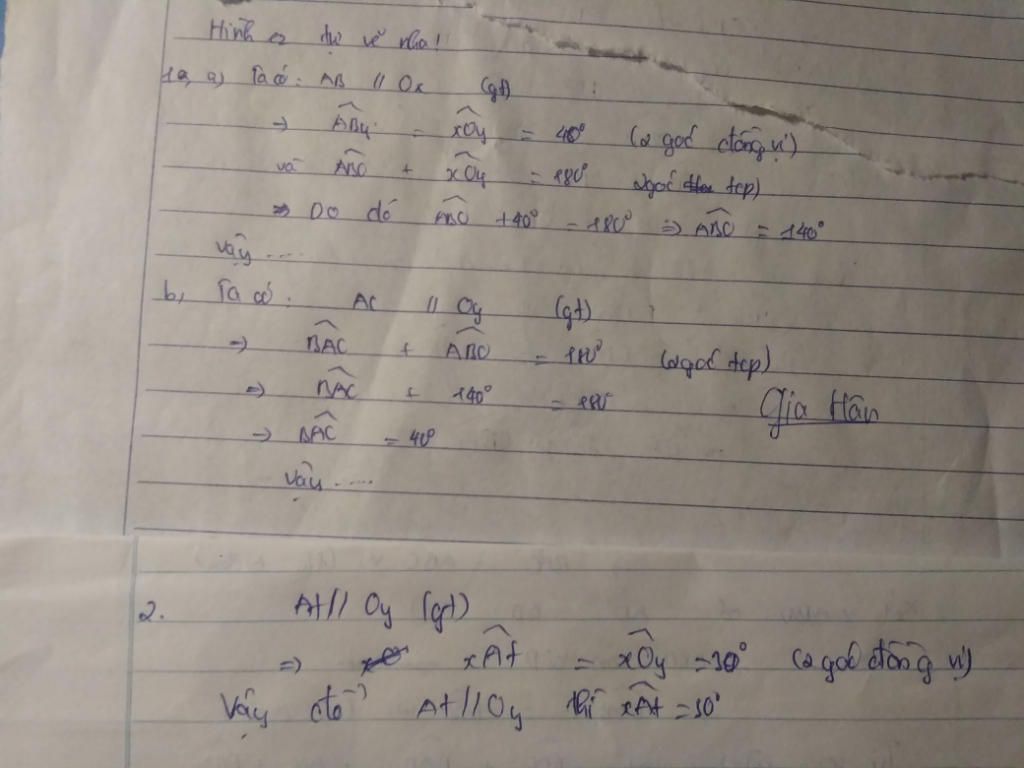 Hình tự vẽ nha!
1a, a) Ta có: AB // Ox (gt)
→ ABy = xOy = 40° (2 góc đồng vị)
và ABO + xOy = 180° 2 góc tcp)
⇒ Do đó ABO + 40° = 180° ⇒ ABO = 140°
vậy ....
b, Ta có: AC // Oy (gt)
→ BAC + ABO = 180° (2 góc tcp)
→ BAC + 140° = 180
→ BAC = 40°
Gia Hân
vậy ....
2. At // Oy (gt)
⇒ xAt = xOy = 30° (2 góc đồng vị)
Vậy để At // Oy thì xAt = 30°